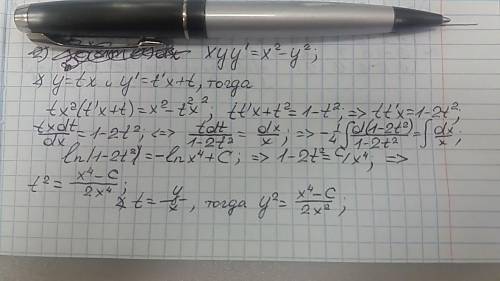 2) xyy' = x² - y²;
∠ y = tx и y' = t'x + t, тогда
tx²(t'x + t) = x² - t²x²; tt'x + t² = 1 - t²; => tt'x = 1 - 2t²;
txdt/dx = 1 - 2t²; <=> tdt/(1 - 2t²) = dx/x; => -1/4 ∫ d(1 - 2t²)/(1 - 2t²) = ∫ dx/x;
ln|1 - 2t²| = -ln x⁴ + C; => 1 - 2t² = C/x⁴; =>
t² = (x⁴ - C)/(2x⁴);
∠ t = y/x, тогда y² = (x⁴ - C)/(2x²);